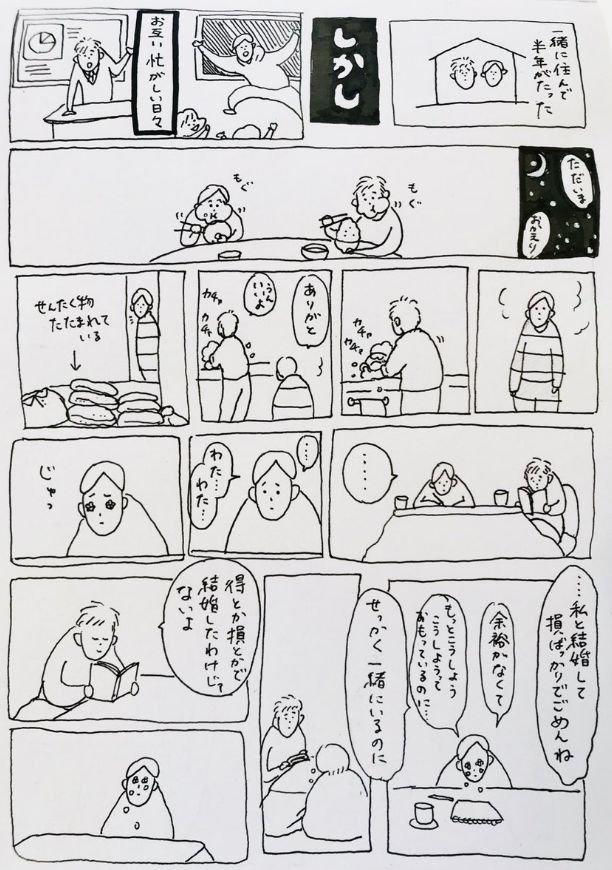 一緒に住んで
半年がたった
しかし
お互い忙がしい日々
ただいま
おかえり
もぐ
もぐ
カチャ
カチャ
ありがと
うん
いいよ
カチャ
カチャ
せんたく物
たたまれて
いる
‥‥
…
わた…
わた…
じゅっ
……私と結婚して
損ばっかりでごめんね
余裕がなくて
もっとこうしよう
こうしようって
おもっているのに…
せっかく一緒にいるのに
得とか損とかで
結婚したわけじゃ
ないよ